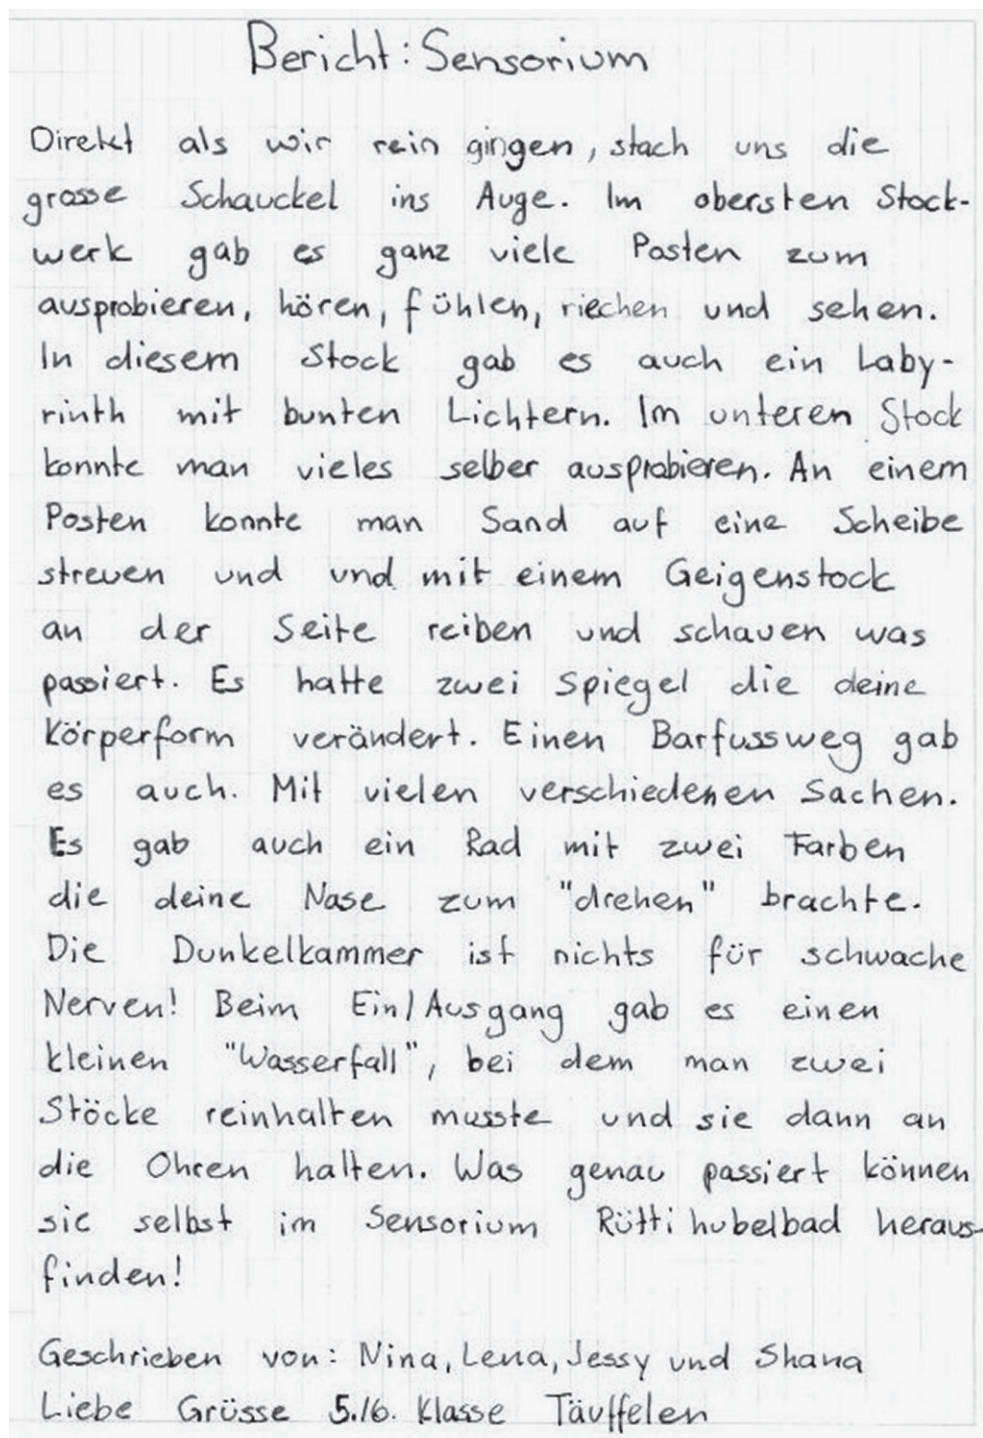 Bericht: Sensorium
Direkt als wir rein gingen, stach uns die
grosse Schauckel ins Auge. Im obersten Stock-
werk gab es ganz viele Posten zum
ausprobieren, hören, fühlen, riechen und sehen.
In diesem Stock gab es auch ein Laby-
rinth mit bunten Lichtern. Im unteren Stock
konnte man vieles selber ausprobieren. An einem
Posten konnte man Sand auf eine Scheibe
streuen und und mit einem Geigenstock
an der Seite reiben und schauen was
passiert. Es hatte zwei Spiegel die deine
Körperform verändert. Einen Barfussweg gab
es auch. Mit vielen verschiedenen Sachen.
Es gab auch ein Rad mit zwei Farben
die deine Nase zum "drehen" brachte.
Die Dunkelkammer ist nichts für schwache
Nerven! Beim Ein/Ausgang gab es einen
kleinen "Wasserfall", bei dem man zwei
Stöcke reinhalten musste und sie dann an
die Ohren halten. Was genau passiert können
sie selbst im Sensorium Rüttihubelbad heraus-
finden!
Geschrieben von: Nina, Lena, Jessy und Shana
Liebe Grüsse 5./6. Klasse Täuffelen